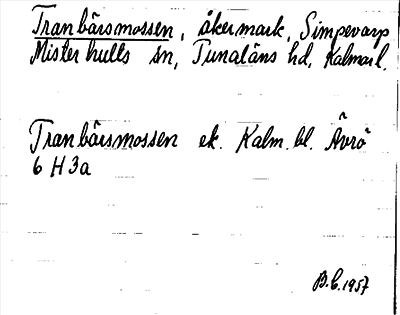 Tranbärsmossen, åkermark, Simpevarp
Misterhults sn, Tunaläns hd, Kalmar l.
Tranbärsmossen ek. Kalm. bl. Ävrö
6 H 3a
B.C. 1957